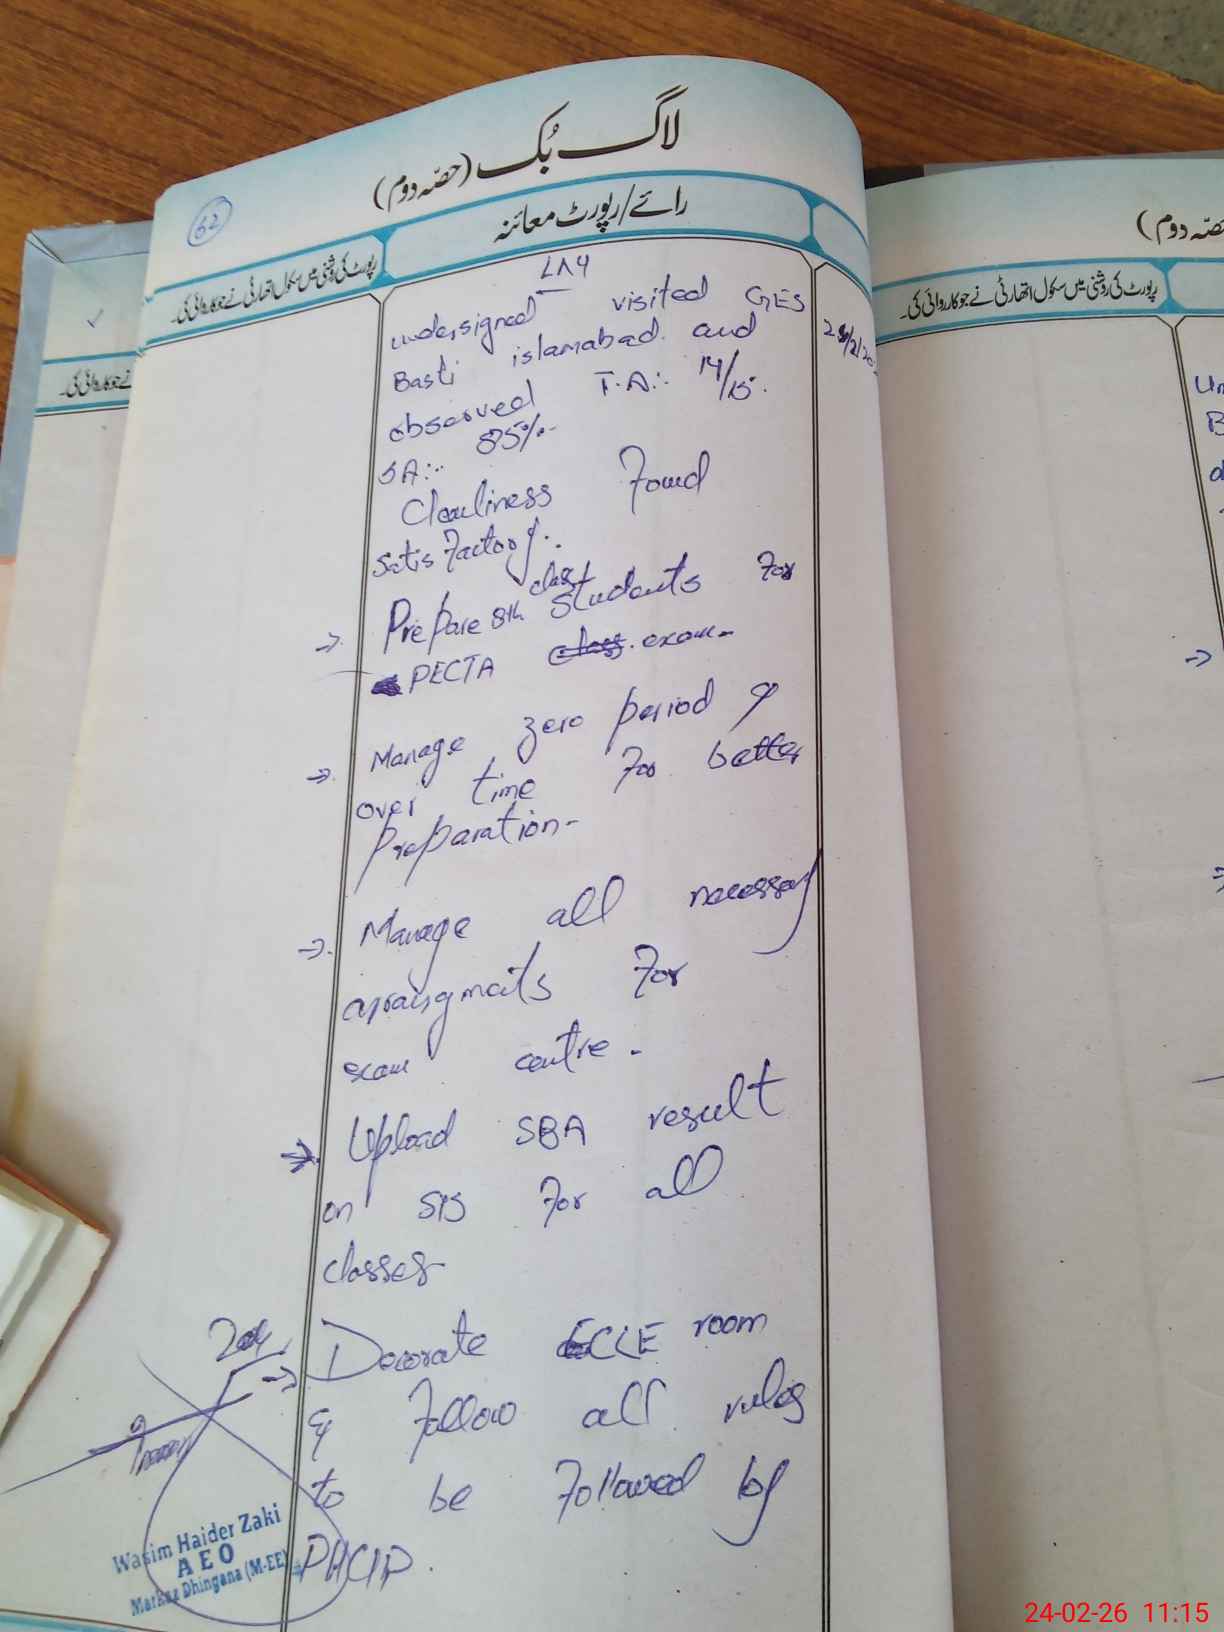 لاگ بُک (حصّہ دوم)
62
رائے/رپورٹ معائنہ
رپورٹ کی روشنی میں سکول اتھارٹی نے جو کارروائی کی۔
LND
undersigned visited GES
Basti islamabad. and
observed T.A:. 14/15.
SA:.. 85%.
Cleanliness Found
Satisfactory.
→ Prepare 8th class Students For
PECTA exam-
→ Manage zero period &
over time For better
preparation-
→ Manage all necessary
arraigments For
exam centre.
→ Upload SBA result
on SIS For all
classes
→ Decorate ECCE room
& Follow all rules
to be Followed by
PHCIP.
Wasim Haider Zaki
AEO
Markaz Dhingana (M-EE)
حصّہ دوم)
رپورٹ کی روشنی میں سکول اتھارٹی نے جو کارروائی کی۔
نے جو کارروائی کی۔
→
24-02-26 11:15